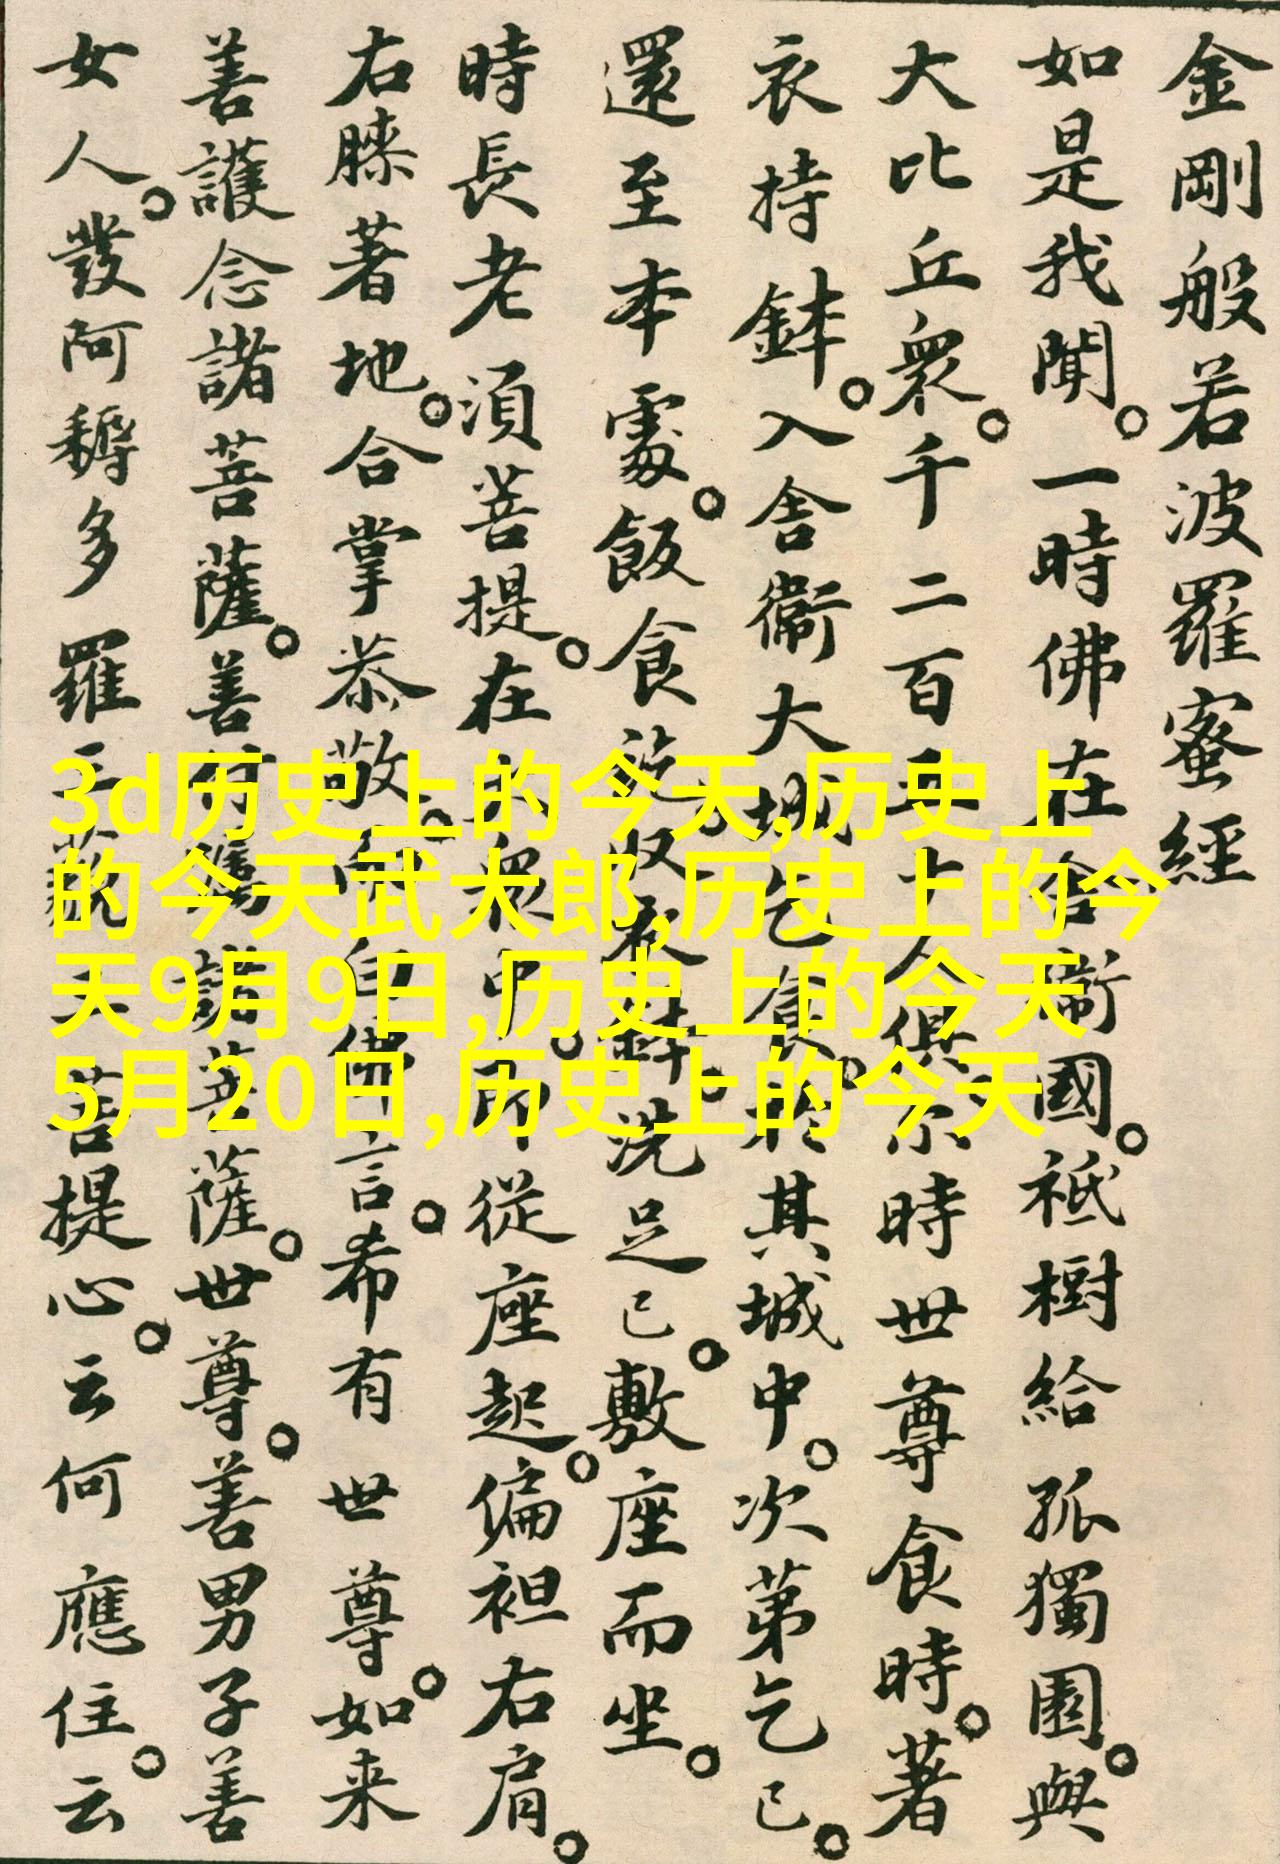 金剛般若波羅蜜經
如是我聞。一時佛在舍衛國。祇樹給孤獨園。與
大比丘衆。千二百五十人俱。尒時世尊食時。著
衣持鉢。入舍衛大城乞食。於其城中。次第乞已。
還至本處。飯食訖。收衣鉢。洗足已。敷座而坐。
時長老須菩提。在大衆中。即從座起。偏袒右肩。
右膝著地。合掌恭敬。而白佛言。希有世尊。如来
善護念諸菩薩。善付囑諸菩薩。世尊。善男子善
女人。發阿耨多羅三藐三菩提心。云何應住。云
3d历史上的今天,历史上
的今天武大郎,历史上的今
天9月9日,历史上的今天
5月20日,历史上的今天